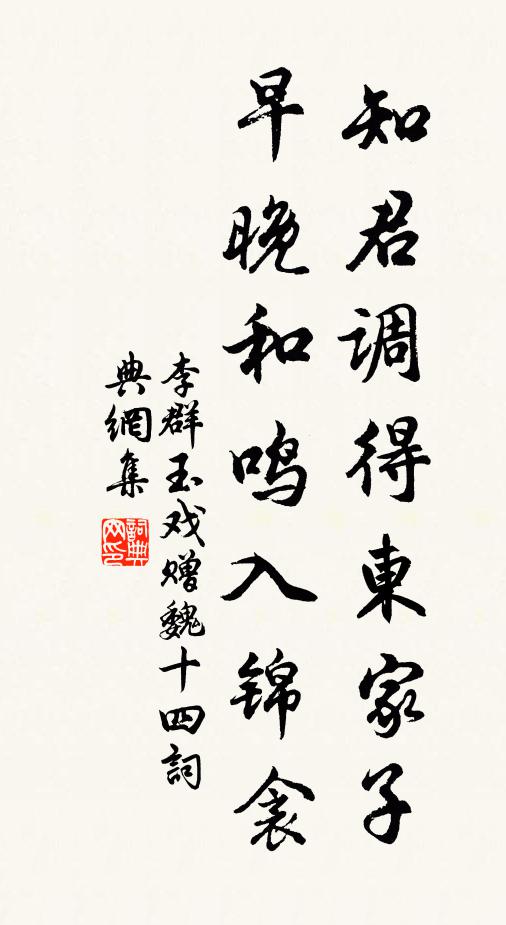 知君调得東家子
早晚和鸣入锦衾
李群玉戏赠魏十四詞
典網集
詞典网印